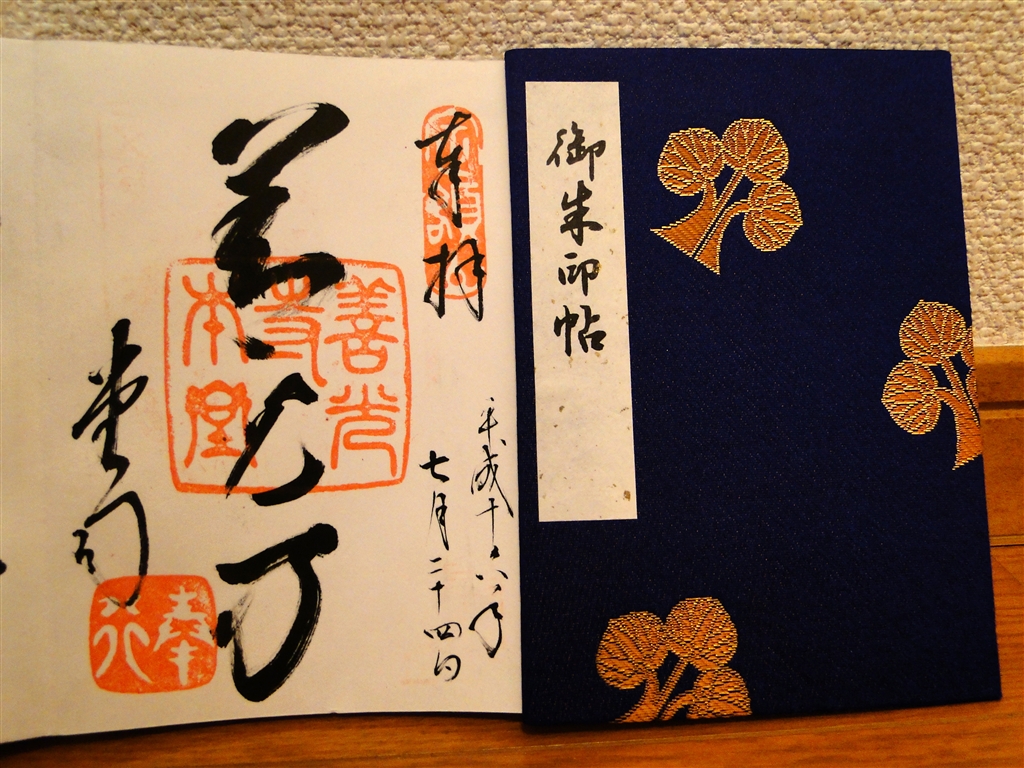 御朱印帖
奉拝
平成十六年
七月二十四日
善光寺
善光寺本堂
堂司
奉行